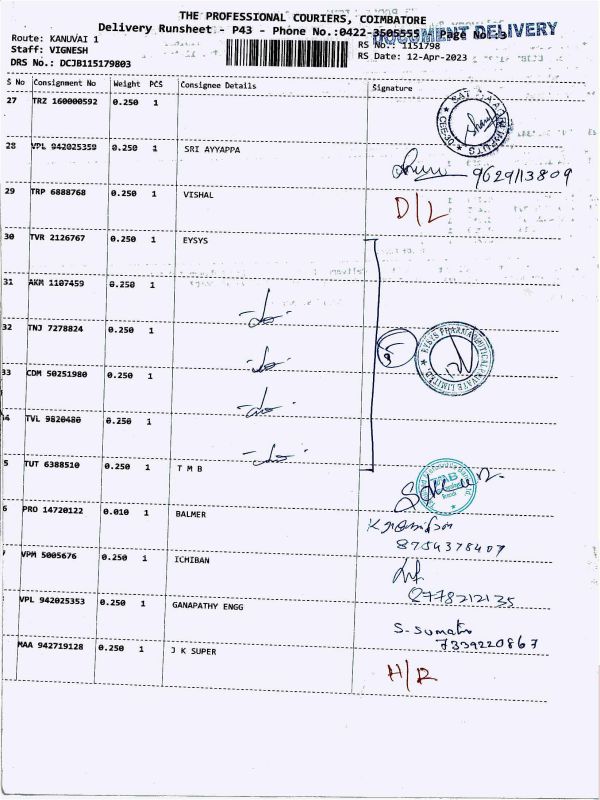 THE PROFESSIONAL COURIERS, COIMBATORE
Delivery Runsheet - P43 - Phone No.:0422-3505555 Page No.:3
DOCUMENT DELIVERY
Route: KANUVAI 1
RS No.: 1151798
Staff: VIGNESH
RS Date: 12-Apr-2023
DRS No.: DCJB115179803
S No Consignment No Weight PCS Consignee Details Signature
27 TRZ 160000592 0.250 1
28 VPL 942025359 0.250 1 SRI AYYAPPA
9629113809
29 TRP 6888768 0.250 1 VISHAL
D/L
30 TVR 2126767 0.250 1 EYSYS
31 AKM 1107459 0.250 1
-do-
32 TNJ 7278824 0.250 1
-do-
33 CDM 50251980 0.250 1
-do-
4 TVL 9820480 0.250 1
-do-
5 TUT 6388510 0.250 1 T M B
6 PRO 14720122 0.010 1 BALMER
8754378407
VPM 5005676 0.250 1 ICHIBAN
VPL 942025353 0.250 1 GANAPATHY ENGG
S. Sumathi
7339220867
MAA 942719128 0.250 1 J K SUPER
H/R